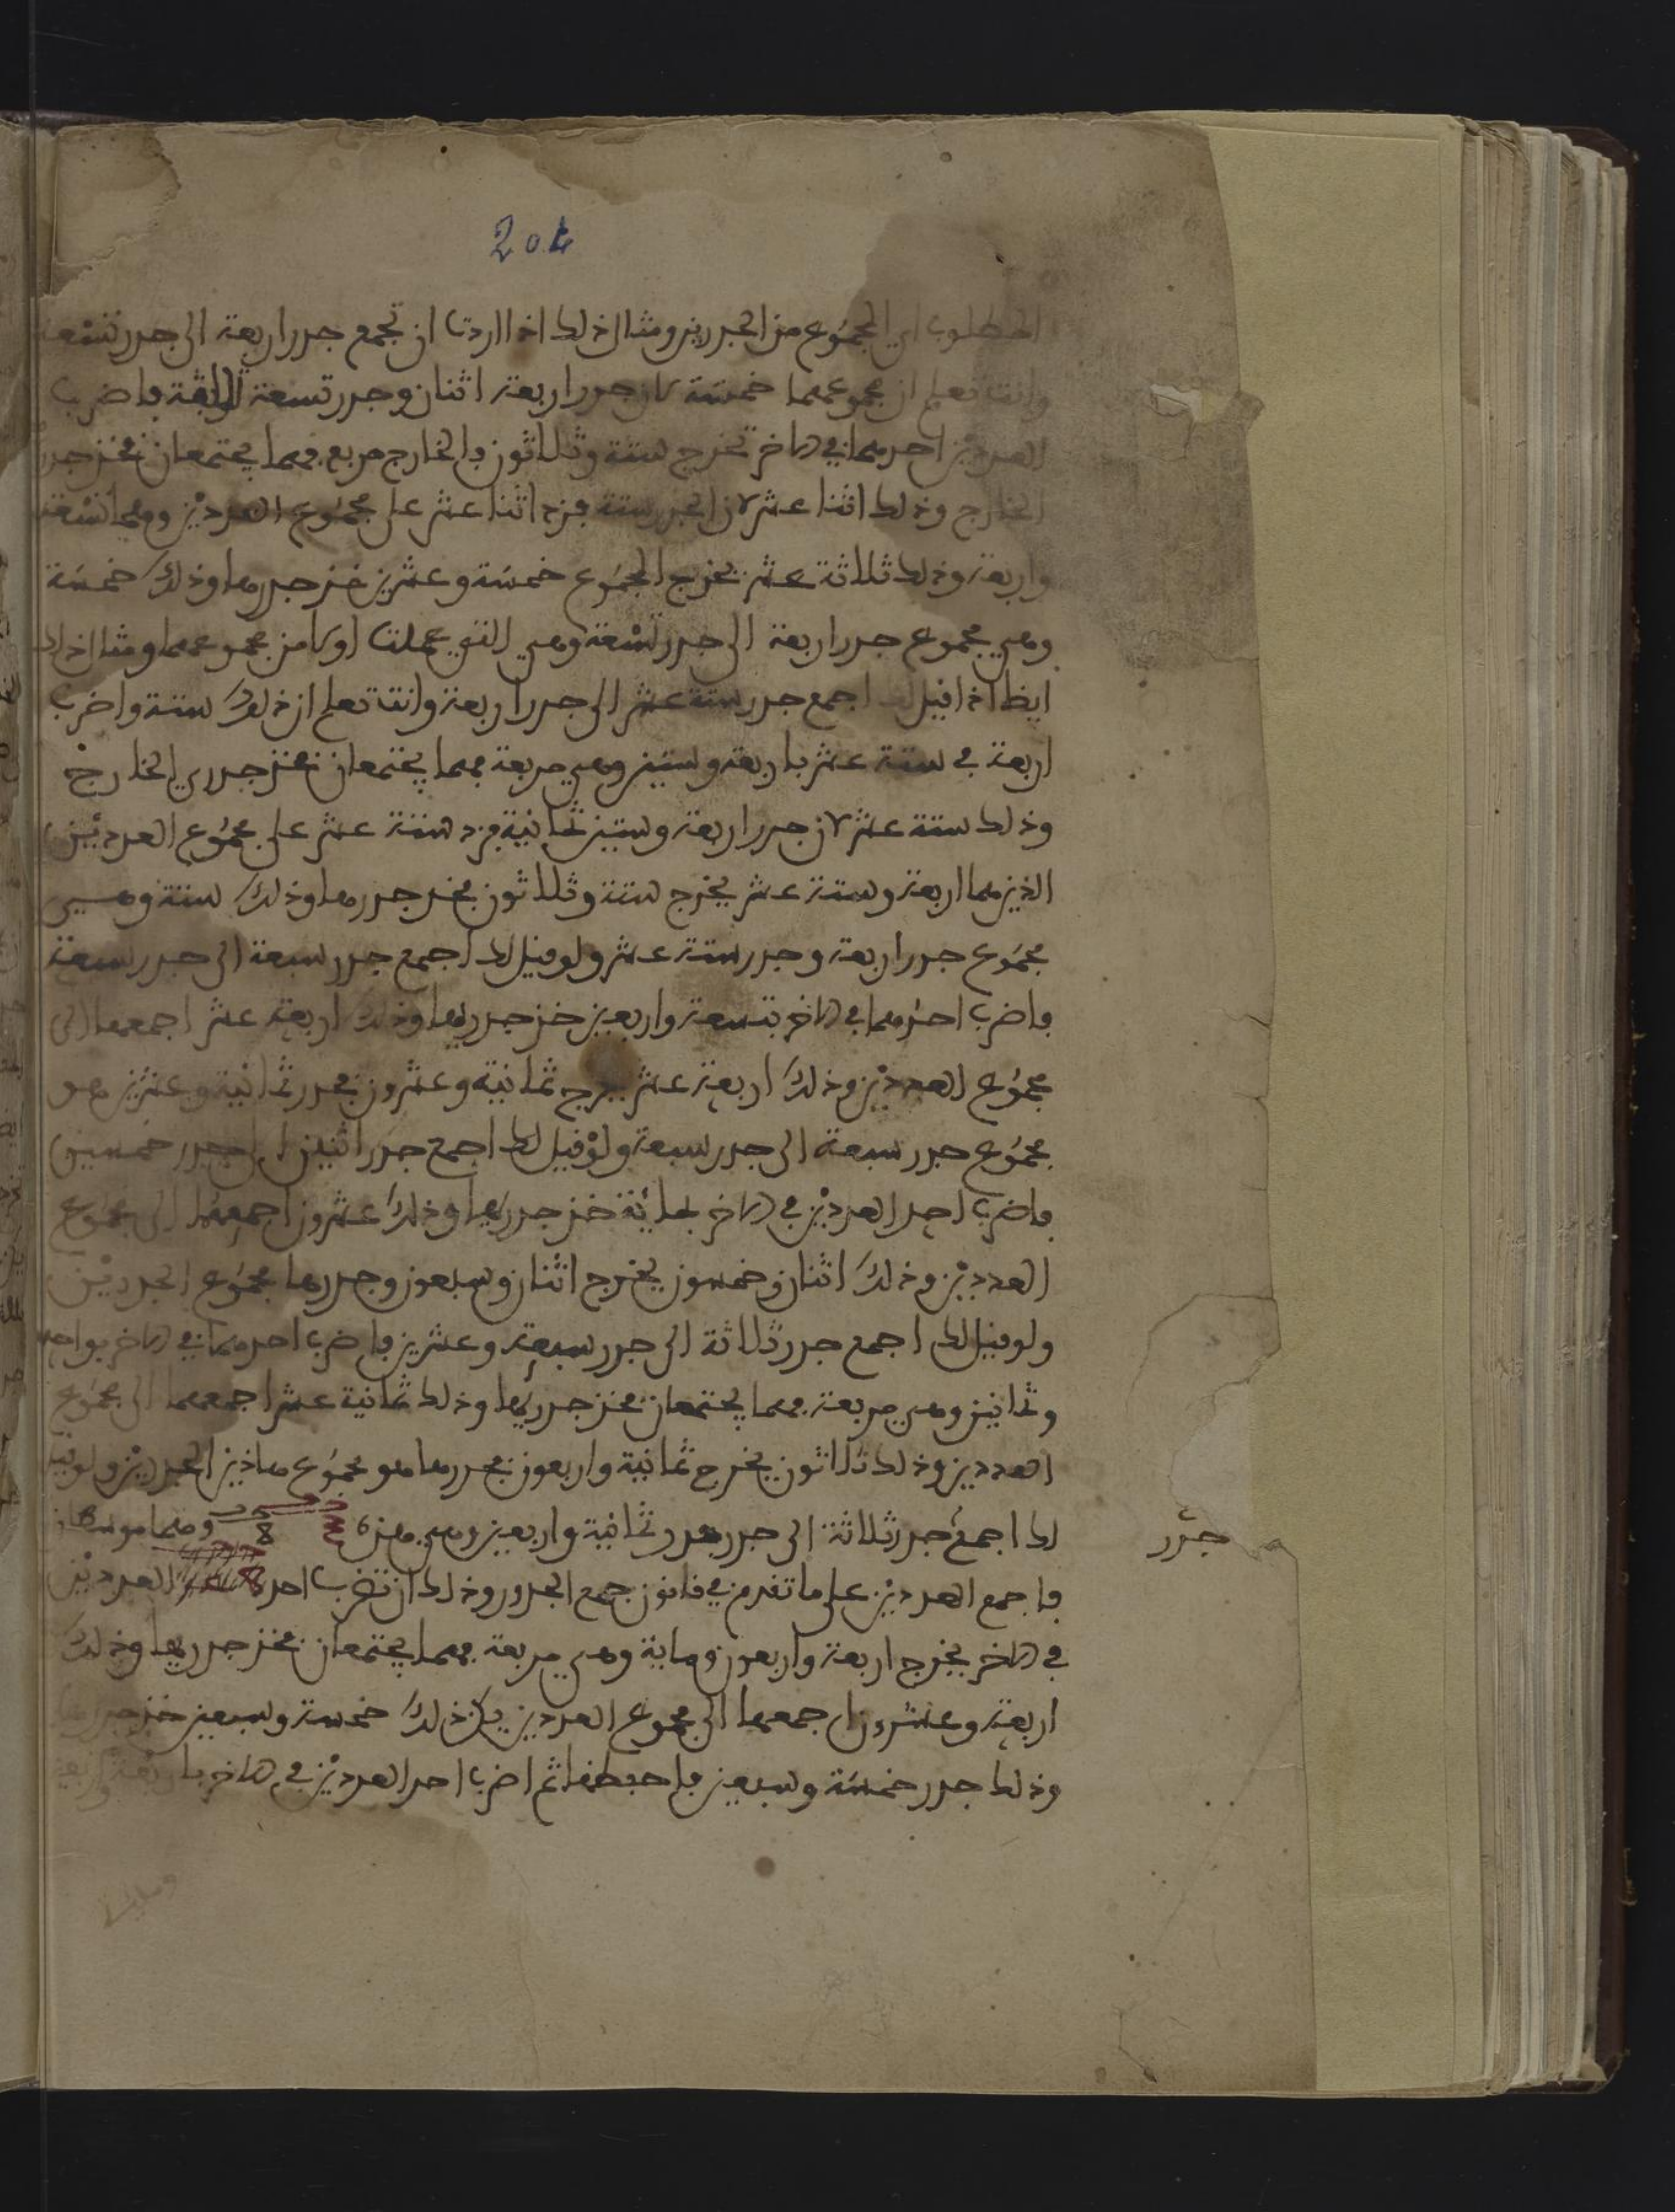 204
المطلوب اي المجموع من الجدرين ومثال ذلك اذا اردت ان تجمع جدر اربعة الى جدر تسعة
وانت تعلم ان مجموعهما خمسة لان جدر اربعة اثنان وجدر تسعة ثلاثة فاضرب
العددين احدهما في الاخر تخرج ستة وثلاثون والخارج مربع فهما يجتمعان فخذ جدري
الخارج وذلك اثنا عشر لان الجدر ستة فزد اثنا عشر على مجموع العددين وهما تسعة
واربعة وذلك ثلاثة عشر يخرج المجموع خمسة وعشرين خذ جدرها وذلك خمسة
وهي مجموع جدر اربعة الى جدر تسعة وهي التي عملت اولا من مجموعهما ومثال ذلك
ايظا اذا قيل لك اجمع جدر ستة عشر الى جدر اربعة وانت تعلم ان ذلك ستة واضرب
اربعة في ستة عشر باربعة وستين وهي مربعة فهما يجتمعان فخذ جدري الخارج
وذلك ستة عشر لان جدر اربعة وستين ثمانية فزد ستة عشر على مجموع العددين
الذين هما اربعة وستة عشر يخرج ستة وثلاثون فخذ جدرها وذلك ستة وهي
مجموع جدر اربعة وجدر ستة عشر ولو قيل لك اجمع جدر سبعة الى جدر سبعة
فاضرب احدهما في الاخر بتسعة واربعين خذ جدريها وذلك اربعة عشر اجمعها الى
مجموع العددين وذلك اربعة عشر يخرج ثمانية وعشرون فجدر ثمانية وعشرين هو
مجموع جدر سبعة الى جدر سبعة ولو قيل لك اجمع جدر اثنين الى جدر خمسين
فاضرب احد العددين في الاخر بمائة خذ جدريها وذلك عشرون اجمعها الى مجموع
العددين وذلك اثنان وخمسون يخرج اثنان وسبعون وجدرها مجموع الجدرين
ولو قيل لك اجمع جدر ثلاثة الى جدر سبعة وعشرين فاضرب احدهما في الاخر بواحد
وثمانين وهي مربعة فهما يجتمعان فخذ جدريها وذلك ثمانية عشر اجمعهما الى مجموع
العددين وذلك ثلاثون يخرج ثمانية واربعون فجدرها هو مجموع هاذين الجدرين ولو قيل
لك اجمع جدر ثلاثة الى جدر جدر ثمانية واربعين وهي هذه 8 وهما
جدر
فاجمع العددين على ما تقدم في قانون جمع الجدور وذلك ان تضرب احد العددين
في الاخر يخرج اربعة واربعون وماية وهي مربعة فهما يجتمعان فخذ جدريها وذلك
اربعة وعشرون اجمعها الى مجموع العددين يكن ذلك خمسة وسبعين خذ جدرها
وذلك جدر خمسة وسبعين فاحفظها ثم اضرب احد العددين في الاخر باربعة واربعين
وماية